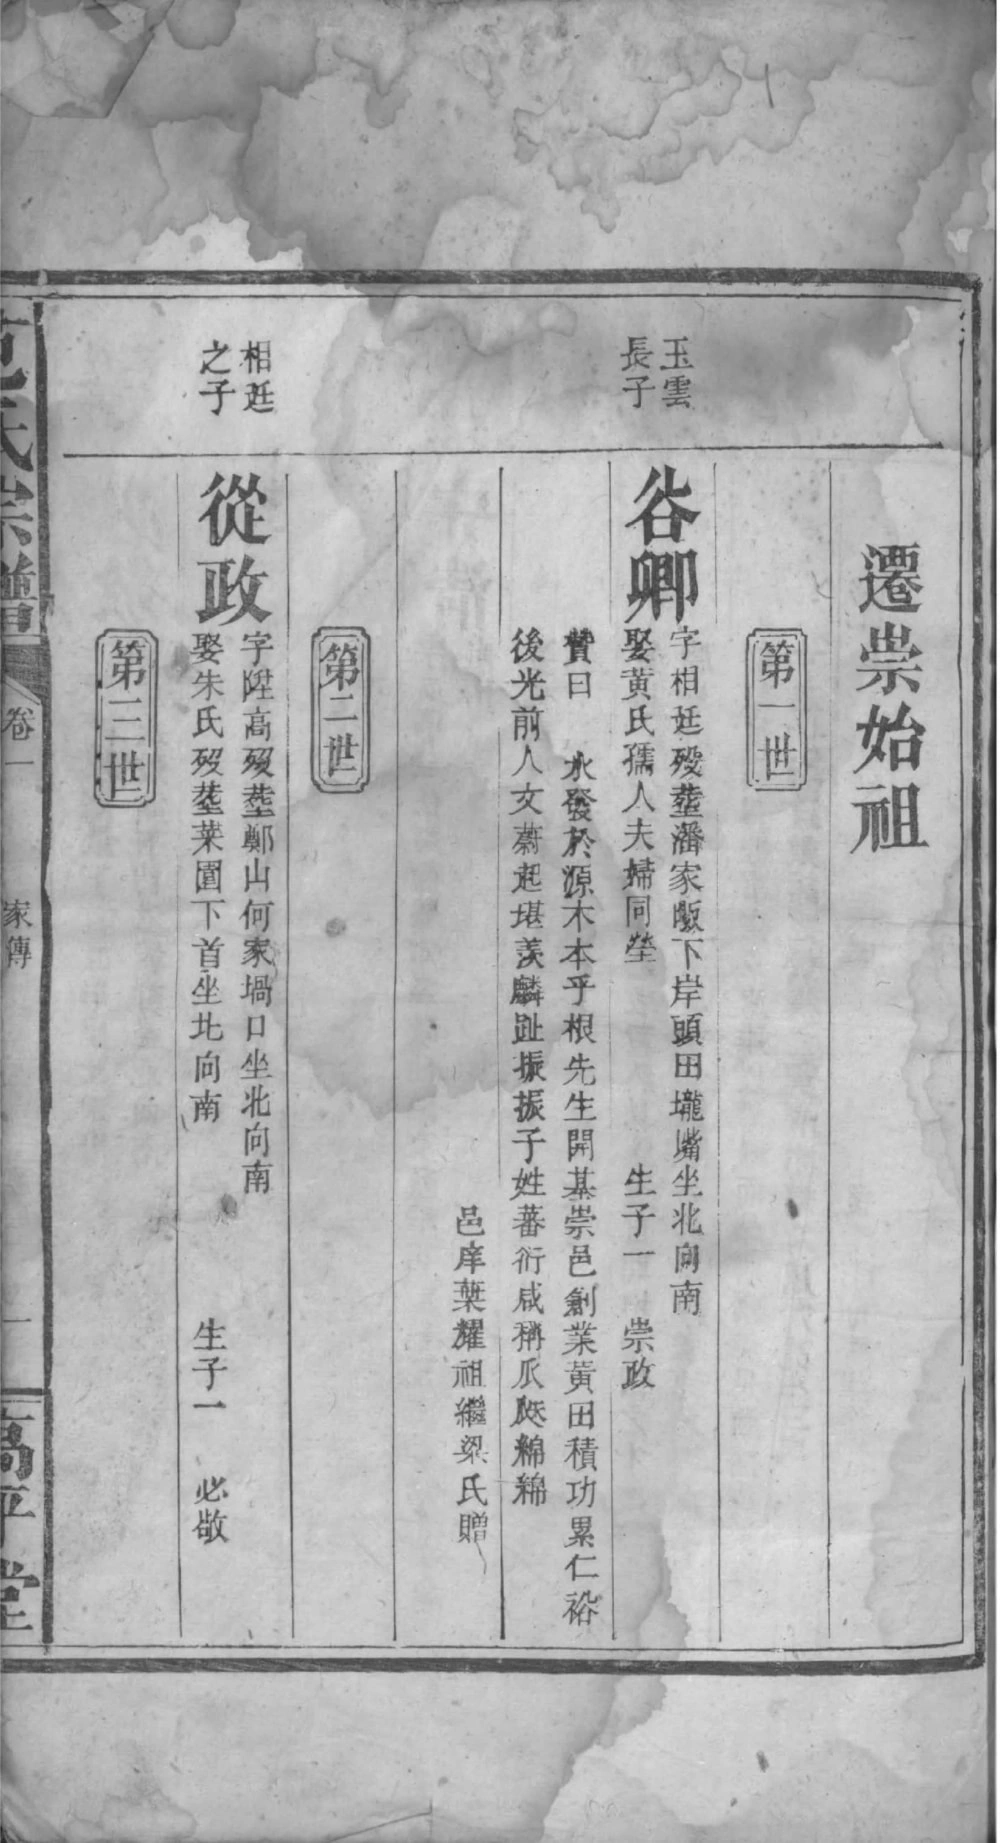 遷崇始祖
第一世
玉雲
長子
谷卿
字相廷殁塟潘家畈下岸頭田壠嘴坐北向南
娶黄氏孺人夫婦同塋 生子一 崇政
贊曰 水發於源木本乎根先生開基崇邑創業黄田積功累仁裕
後光前人文蔚起堪羡麟趾振振子姓蕃衍咸稱瓜瓞綿綿
邑庠葉耀祖繼梁氏贈
第二世
相廷
之子
從政
字陞高殁塟鄭山何家塥口坐北向南
娶朱氏殁塟菜園下首坐北向南 生子一 必敬
第三世
范氏宗譜
卷一
家傳
一
高平堂